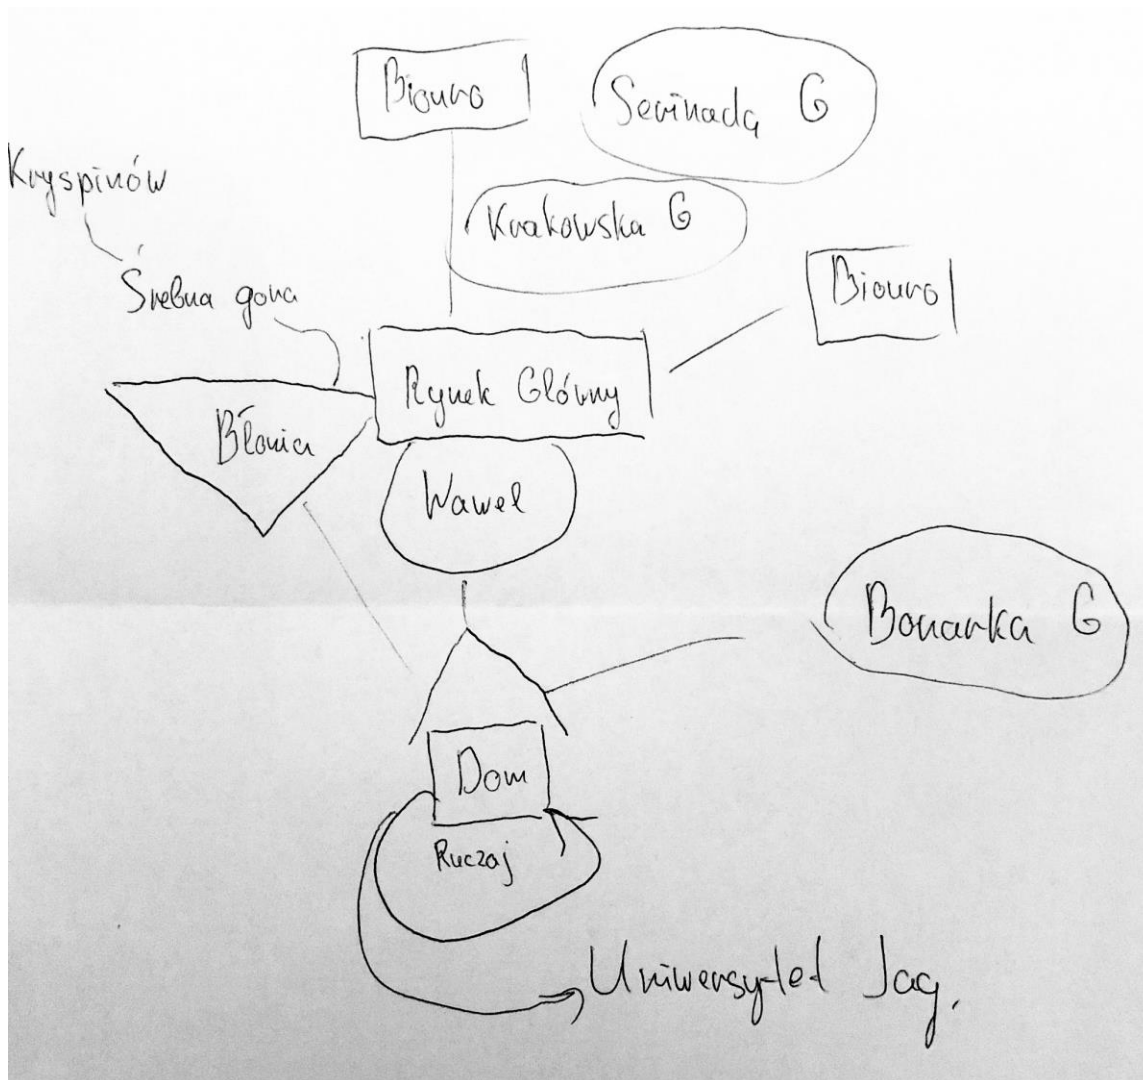 Biouro
Serinada G
Kryspinów
Krakowska G
Śrebna gora
Biouro
Rynek Glówny
Błonia
Wawel
Bonarka G
Dom
Ruczaj
Uniwersytet Jag.